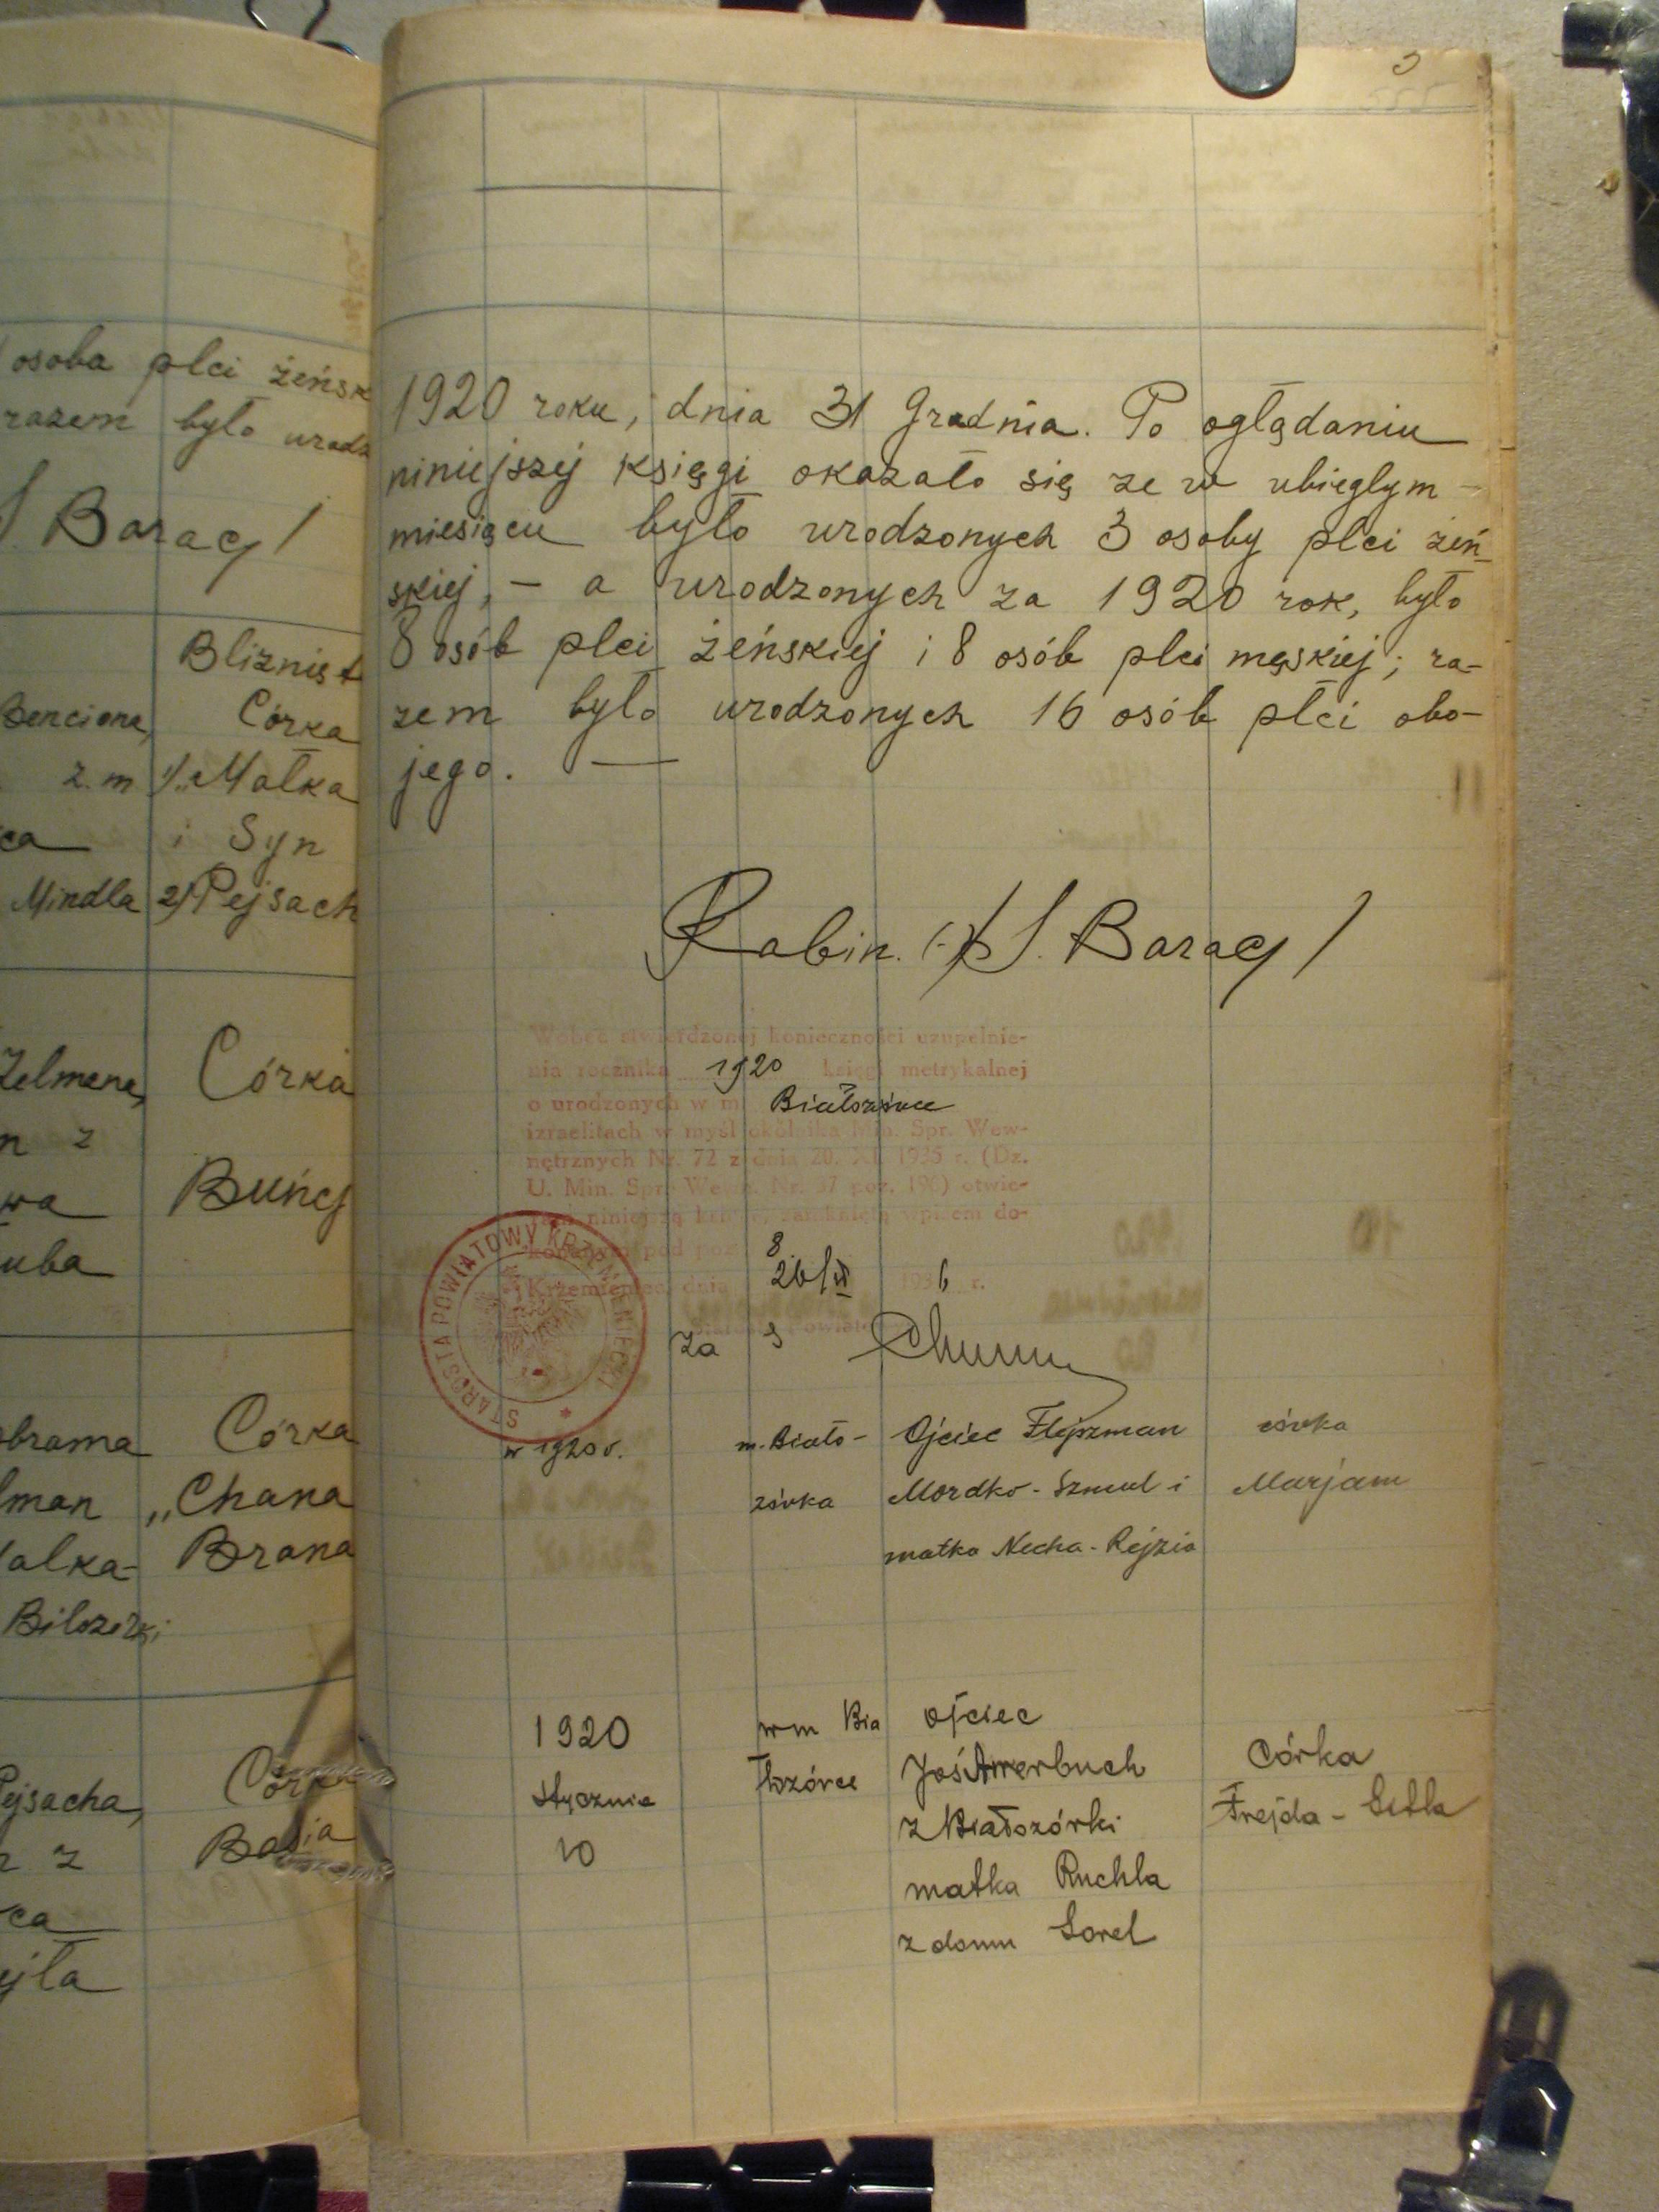 osoba plci żeńsk
razem było urodz
S. Barac /
Bliźnięt
Benciona, Córka
z. m 1/. Małka
ca i Syn
Mindla 2/ Pejsach
Zelmana, Córka
n z
wa Buńcy
uba
Abrama Córka
lman „Chana
alka- Brana
Bilozerki
Pejsacha, Córka
z Basia
ca
ejła
1920 roku, dnia 31 Grudnia. Po oglądaniu
niniejszej księgi okazało się ze w ubieglym -
miesiącu było urodzonych 3 osoby plci żeń
skiej, - a urodzonych za 1920 rok, było
8 osób plci żeńskiej i 8 osób plci męskiej; ra-
zem było urodzonych 16 osób płci obo-
jego. —
Rabin. (-) /S. Barac /
Wobec stwierdzonej konieczności uzupełnie-
nia rocznika 1920 księgi metrykalnej
o urodzonych w m. Białozórce
izraelitach w myśl okólnika Min. Spr. Wew-
nętrznych Nr. 72 z dnia 20. XI. 1935 r. (Dz.
U. Min. Spr. Wewn. Nr. 37 poz. 190) otwie-
ram niniejszą księgę, zamkniętą wpisem do-
konanym pod poz. 8
Krzemieniec, dnia 26/ 1936 r.
Starosta Powiatowy
za
STAROSTA POWIATOWY KRZEMIENIECKI
w 1920 r. m. Biało- Ojciec Flejszman córka
zórka Mordko - Szmul i Marjam
matka Necha - Rejzia
1920 w m Bia ojciec
stycznia łozórce Joś Awerbuch Córka
10 z Białozórki Frejda - Setla
matka Ruchla
z domu Sorel